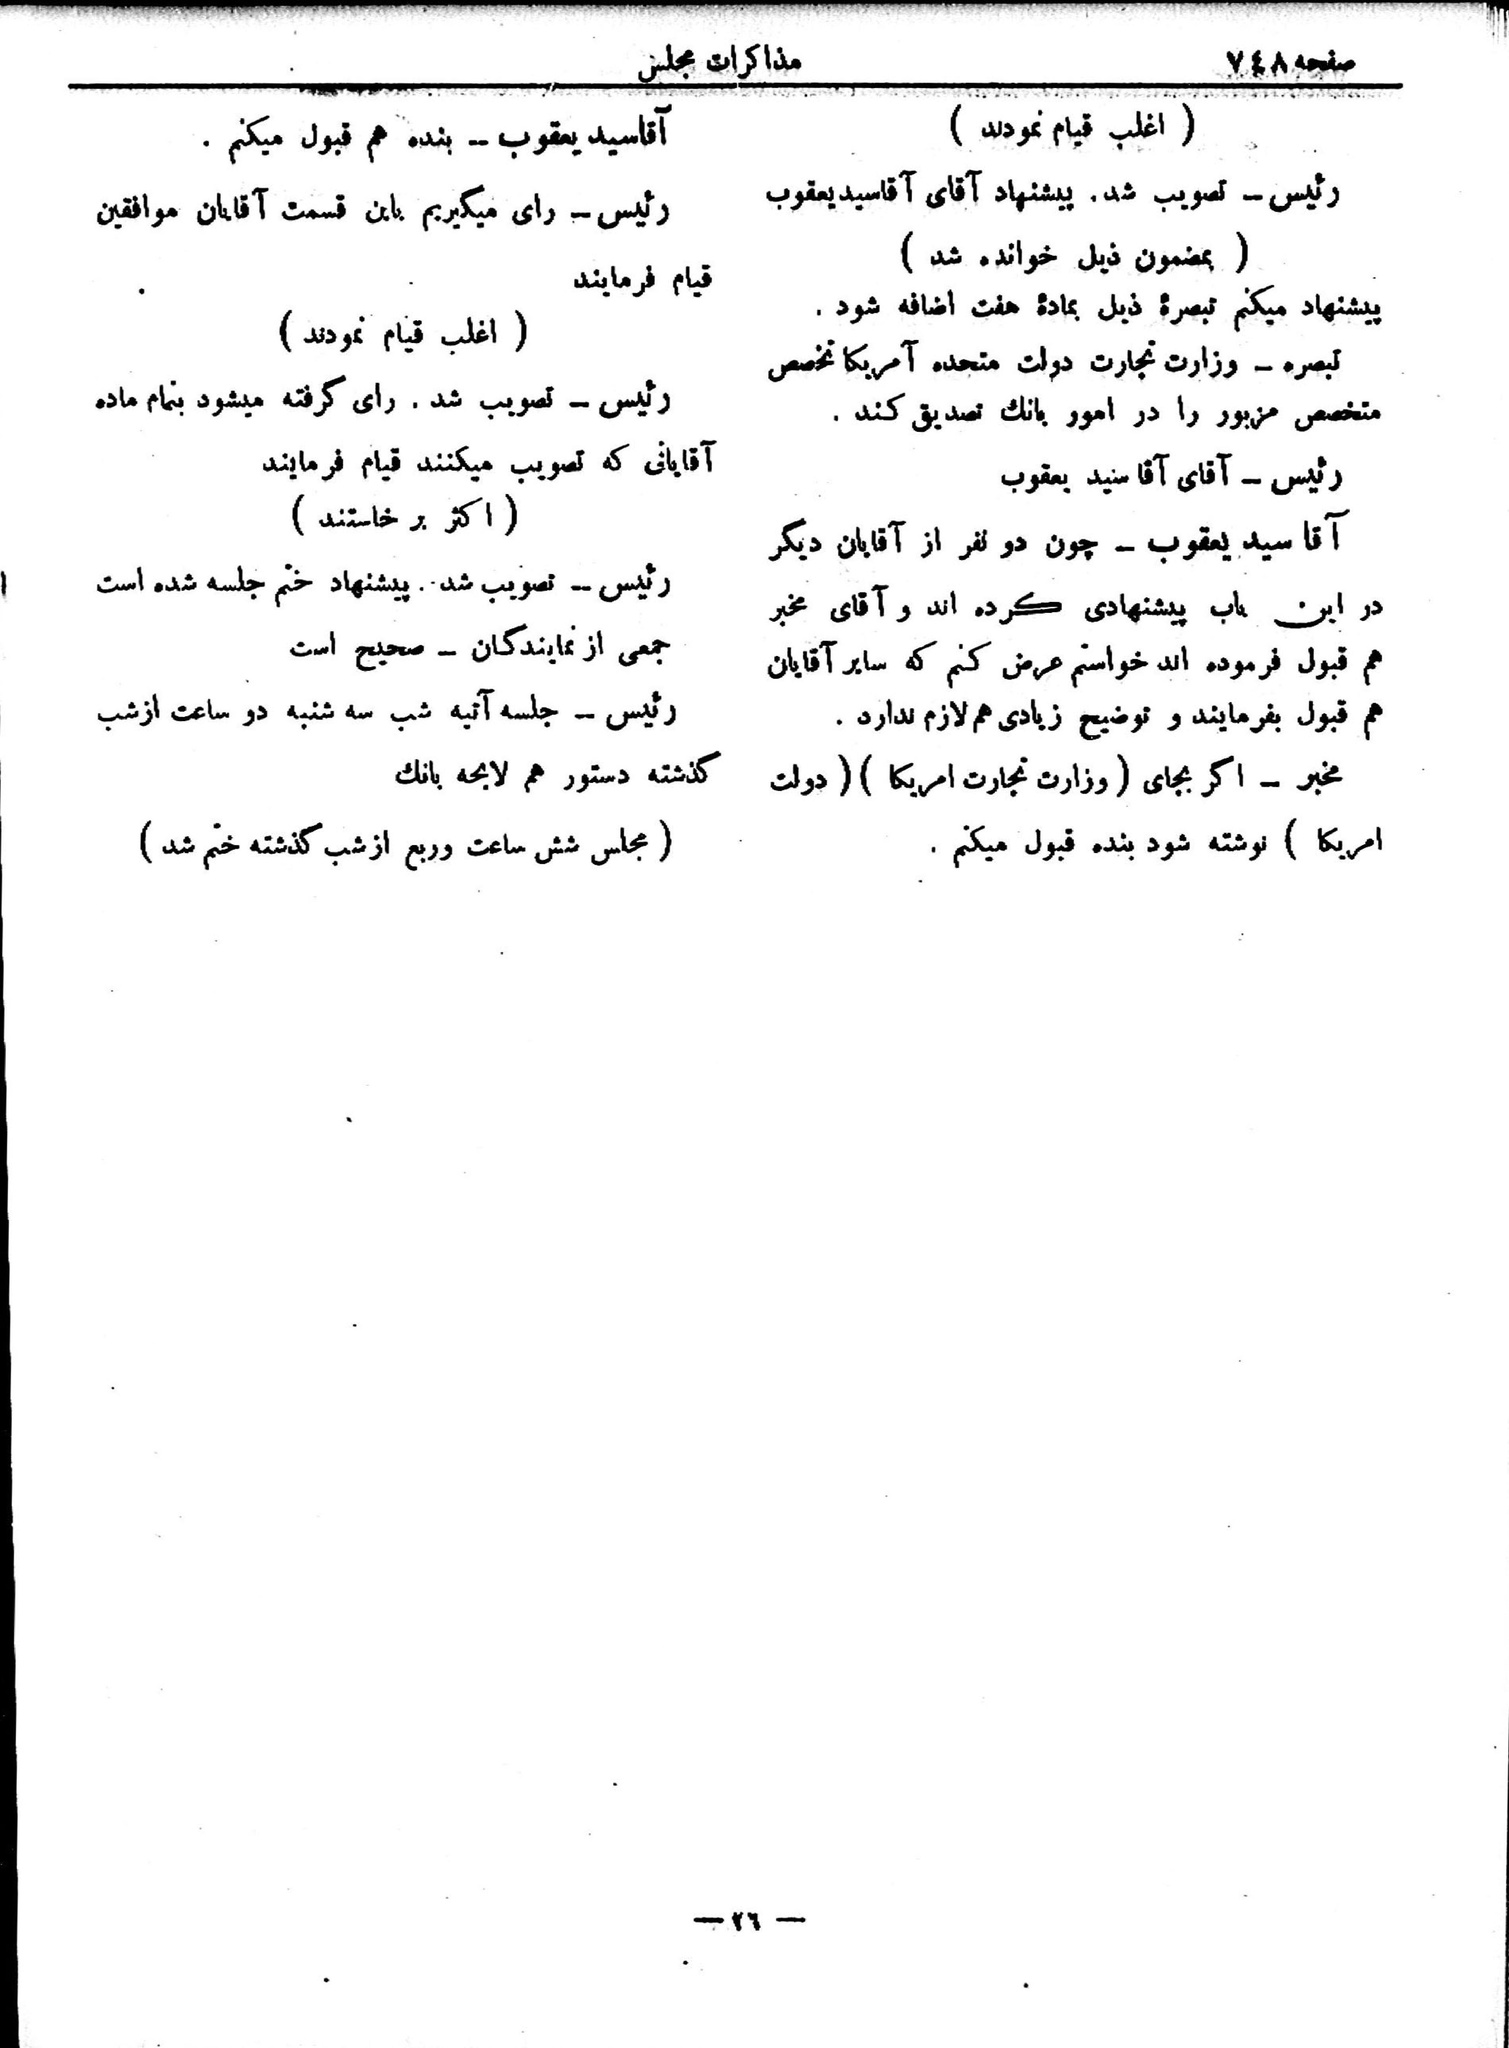 صفحه ۷٤۸
مذاکرات مجلس
( اغلب قیام نمودند )
رئیس ــ تصویب شد. پیشنهاد آقای آقاسید یعقوب
( بمضمون ذیل خوانده شد )
پیشنهاد میکنم تبصرهٔ ذیل بمادهٔ هفت اضافه شود .
تبصره ــ وزارت تجارت دولت متحده آمریکا تخصص
متخصص مزبور را در امور بانك تصدیق کند .
رئیس ــ آقای آقا سید یعقوب
آقا سید یعقوب ــ چون دو نفر از آقایان دیگر
در این باب پیشنهادی کرده اند و آقای مخبر
هم قبول فرموده اند خواستم عرض کنم که سایر آقایان
هم قبول بفرمایند و توضیح زیادی هم لازم ندارد .
مخبر ــ اگر بجای ( وزارت تجارت امریکا ) ( دولت
امریکا ) نوشته شود بنده قبول میکنم .
آقاسید یعقوب ــ بنده هم قبول میکنم .
رئیس ــ رای میگیریم باین قسمت آقایان موافقین
قیام فرمایند
( اغلب قیام نمودند )
رئیس ــ تصویب شد . رای گرفته میشود بتمام ماده
آقایانی که تصویب میکنند قیام فرمایند
( اکثر بر خاستند )
رئیس ــ تصویب شد . پیشنهاد ختم جلسه شده است
جمعی از نمایندگان ــ صحیح است
رئیس ــ جلسه آتیه شب سه شنبه دو ساعت از شب
گذشته دستور هم لایحه بانك
( مجلس شش ساعت وربع از شب گذشته ختم شد )
— ۲٦ —